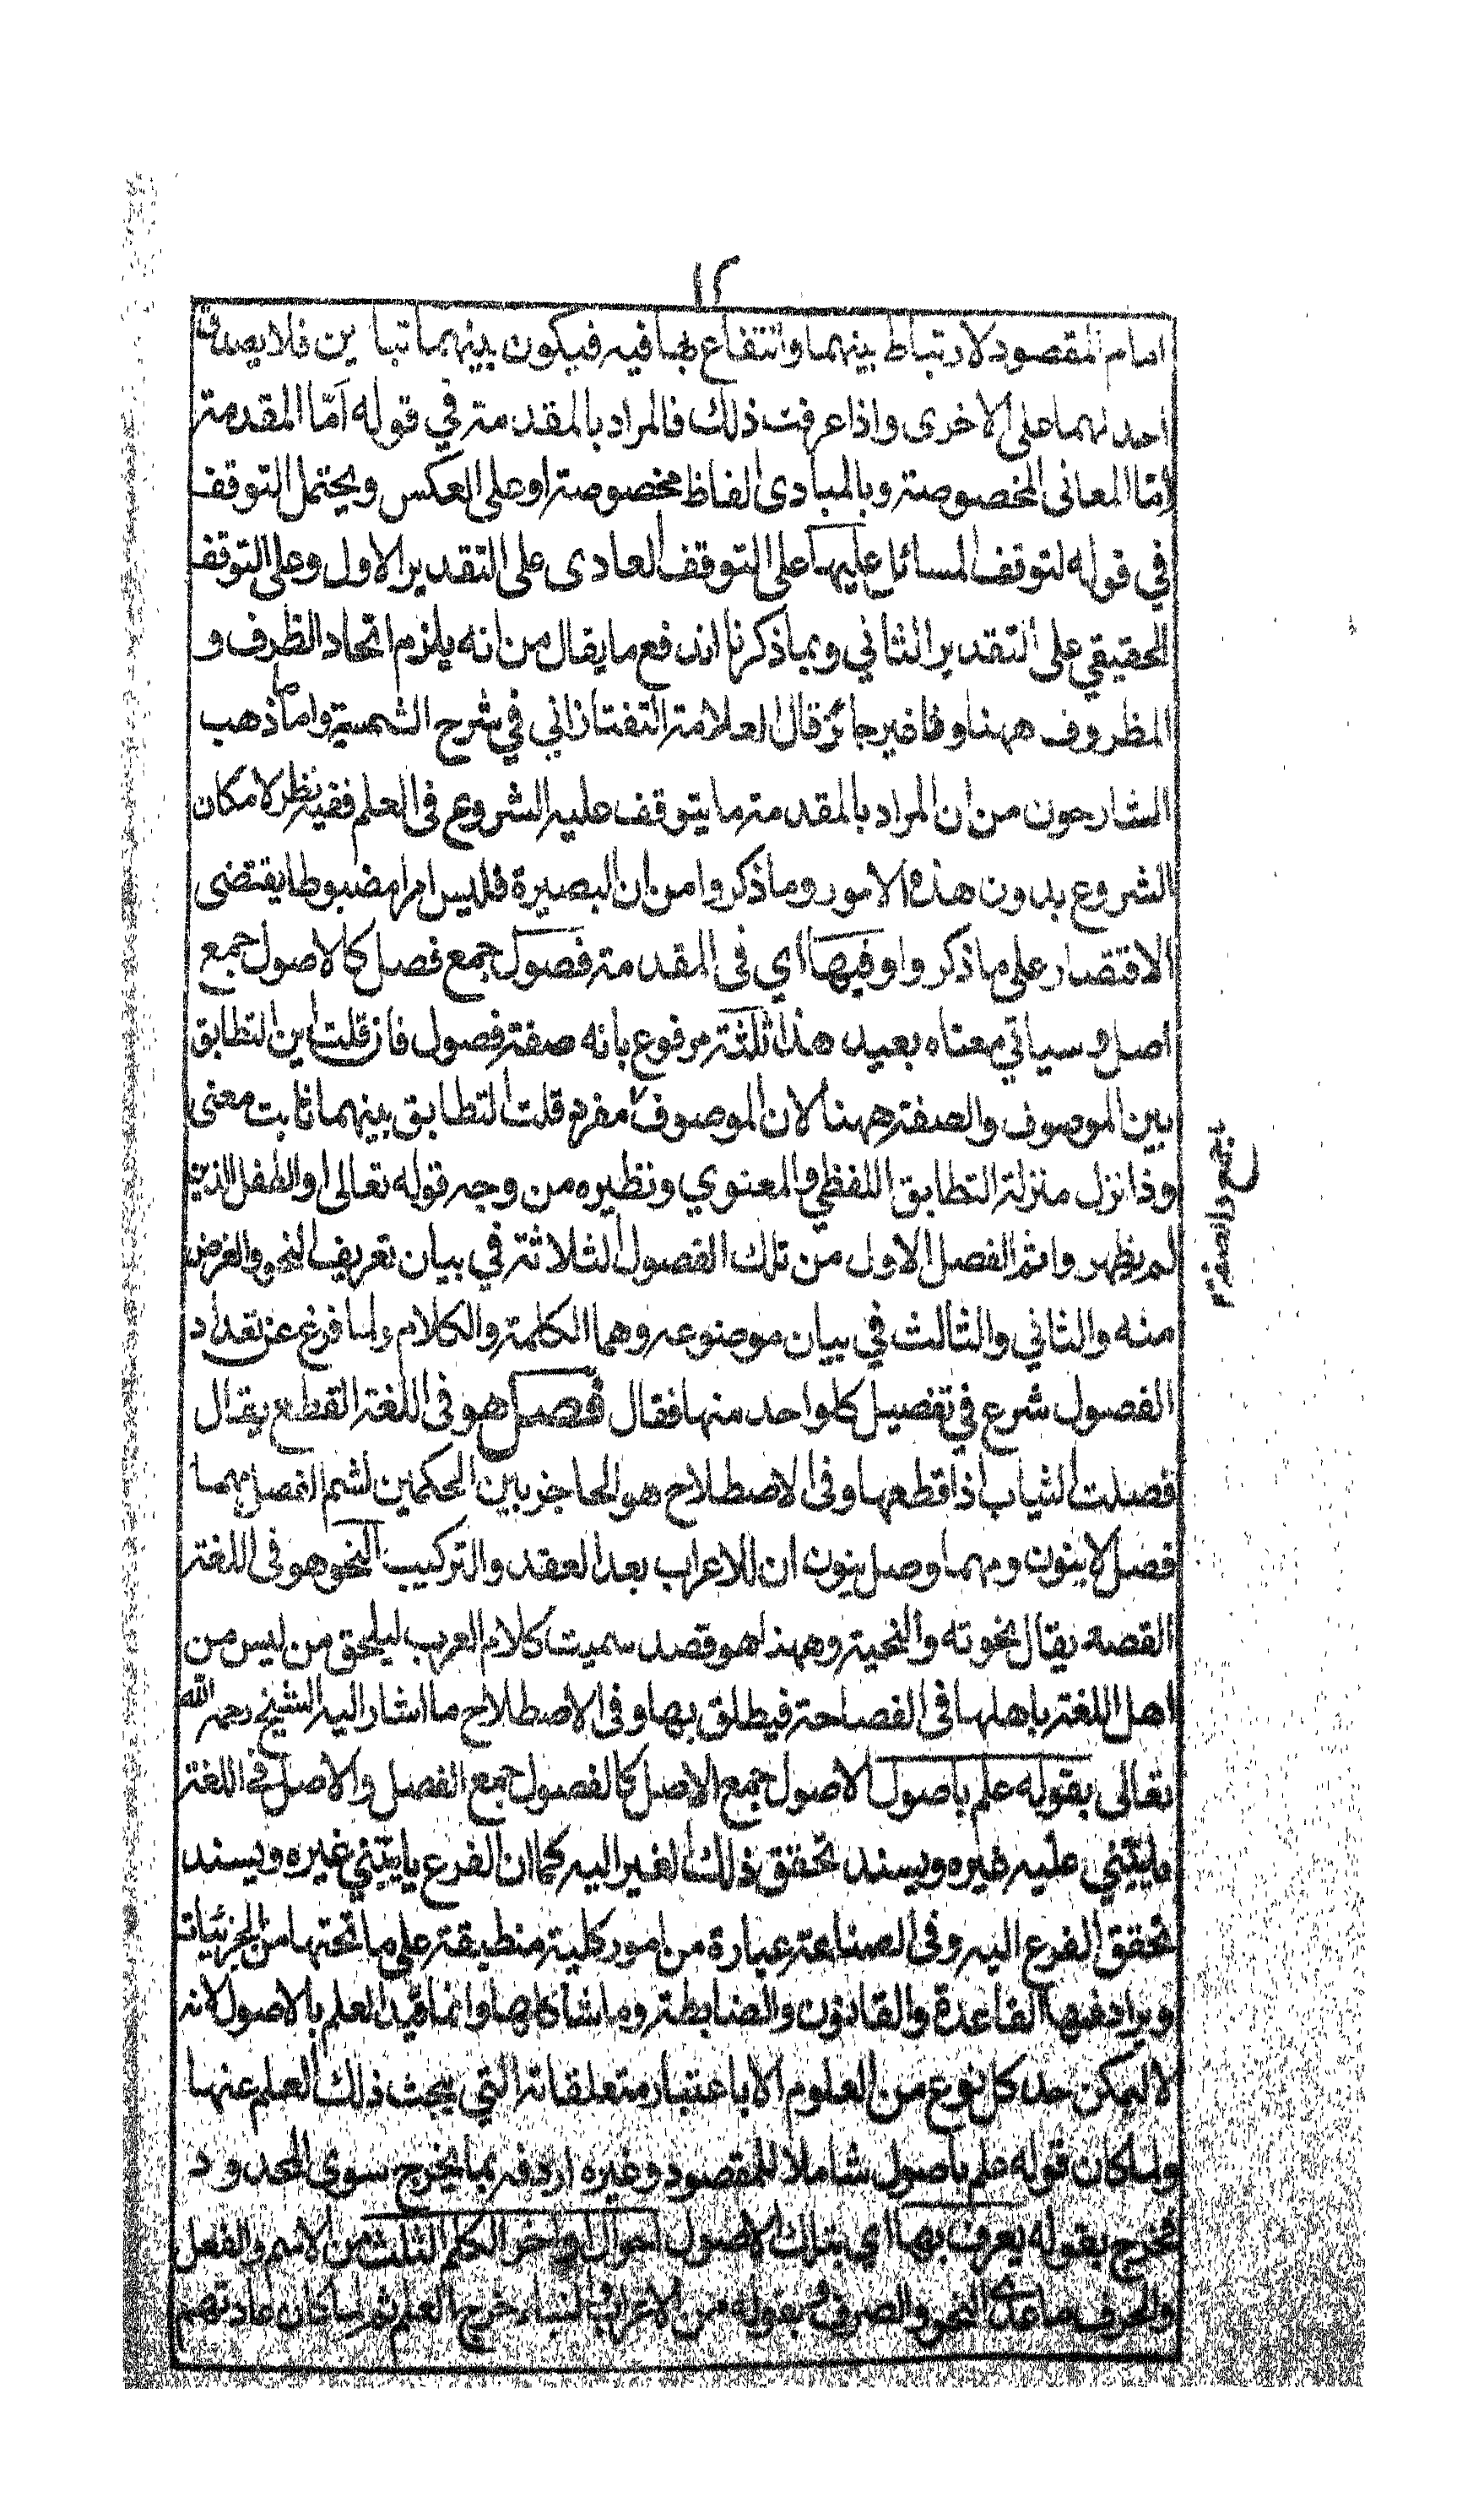 ١٢
امام المقصود لارتباط بينهما وانتفاع بها فيه فيكون بينهما تباين فلا يصدق
احدلهما على الاخرى واذا عرفت ذلك فالمراد بالمقدمة في قوله اما المقدمة
اما المعانى المخصوصة وبالمبادى الفاظ مخصوصة او على العكس ويحتمل التوقف
في قوله لتوقف المسائل عليها على التوقف العادى على التقدير الاول وعلى التوقف
الحقيقي على التقدير الثاني وبما ذكرنا اندفع ما يقال من انه يلزم اتحاد الظرف و
المظروف ههنا وفا غير جائز قال العلامة التفتازاني في شرح الشمسية واما ما ذهب
الشارحون من ان المراد بالمقدمة ما يتوقف عليه الشروع فى العلم ففيه نظر لامكان
الشروع بدون هذه الامور وما ذكروا من ان البصيرة فليس امرا مضبوطا يقتضى
الاقتصار على ما ذكروا وفيها اي فى المقدمة فصول جمع فصل كالاصول جمع
اصل وسياتي معناه بعيد هذا ثلثة مرفوع بانه صفة فصول فان قلت اين التطابق
بين الموصوف والصفة ههنا لان الموصوف مفرد قلت التطابق بينهما ثابت معنى
وذا نزل منزلة التطابق اللفظي والمعنوي ونظيره من وجه قوله تعالى او الطفل الذين
لم يظهروا ثم الفصل الاول من تلك الفصول الثلاثة في بيان تعريف النحو والغرض
منه والثاني والثالث في بيان موضوعه وهما الكلمة والكلام ولما فرغ عن تعداد
الفصول شرع في تفصيل كل واحد منها فقال فصل هو فى اللغة القطع يقال
فصلت الثياب اذا قطعها وفى الاصطلاح هو الحاجز بين الحكمين لشم الفصل مهما
فصل لا ينون ومهما وصل ينون ان للاعراب بعد العقد والتركيب النحو هو فى اللغة
القصد يقال نحوته والنحية وههذا هو قصد سميت كلام العرب ليلحق من ليس من
اهل اللغة باهلها فى الفصاحة فيطلق بها وفى الاصطلاح ما اشار اليه الشيخ رحمه الله
تعالى بقوله علم باصول الاصول جمع الاصل كالفصول جمع الفصل والاصل في اللغة
ما يبتني عليه غيره ويسند تحقق ذلك الغير اليه كما ان الفرع ما يبتني غيره ويسند
تحقق الفرع اليه وفى الصناعة عبارة من امور كلية منطبقة على ما تحتها من الجزئيات
ويرادفها القاعدة والقانون والضابطة وما شاكلها وانما قيد العلم بالاصول لانه
لا يمكن حد كل نوع من العلوم الا باعتبار متعلقاته التي يبحث ذلك العلم عنها
ولما كان قوله علم باصول شاملا للمقصود وغيره اردفه بما يخرج سوى المحدود
فخرج بقوله يعرف بها اي بتلك الاصول احوال اواخر الكلم الثلث من الاسم والفعل
والحرف ما عدا النحو والصرف وبقوله من الاعراب والبناء خرج العلم ثم لما كان عادتهم